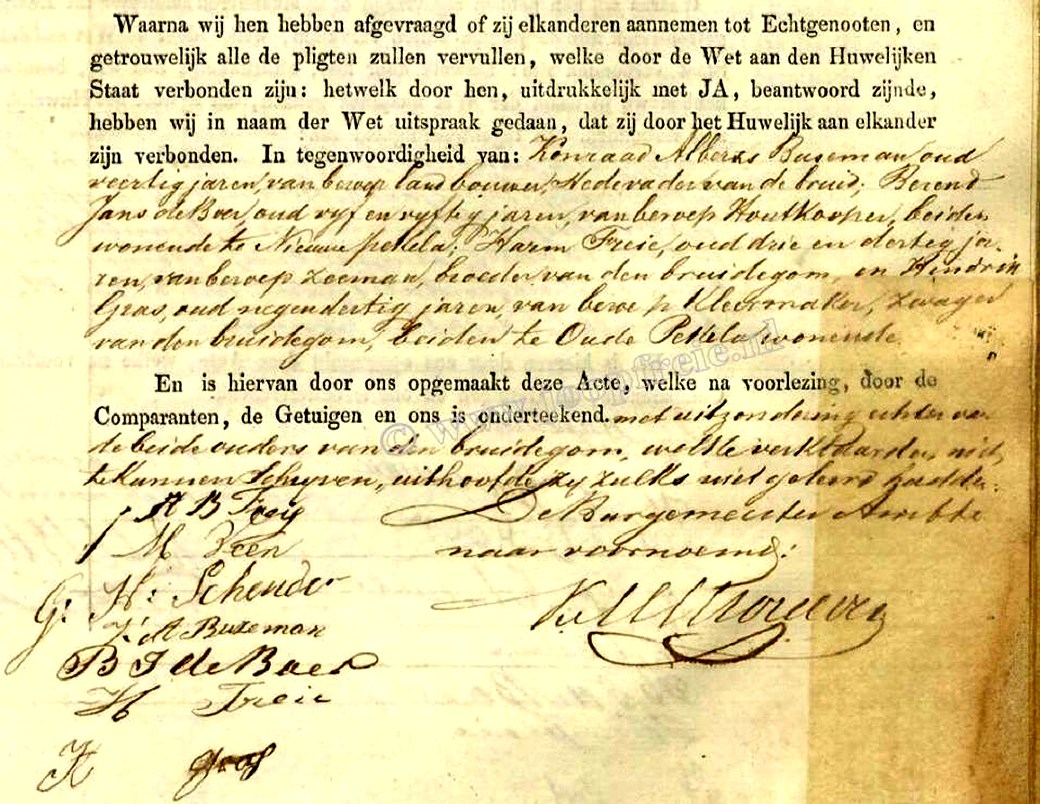 Waarna wij hen hebben afgevraagd of zij elkanderen aannemen tot Echtgenooten, en
getrouwelijk alle de pligten zullen vervullen, welke door de Wet aan den Huwelijken
Staat verbonden zijn: hetwelk door hen, uitdrukkelijk met JA, beantwoord zijnde,
hebben wij in naam der Wet uitspraak gedaan, dat zij door het Huwelijk aan elkander
zijn verbonden. In tegenwoordigheid van: Konraad Alberts Buseman, oud
veertig jaren, van beroep landbouwer, stedevader van de bruid; Berend
Jans de Boer, oud vyf en vyftig jaren, van beroep Houtkooper, beiden
wonende te Nieuwe Pekela; Harm Freie, oud drie en dertig ja-
ren, van beroep zeeman, broeder van den bruidegom, en Hindrik
Gras, oud negendertig jaren, van beroep Kleermaker, zwager
van den bruidegom, beiden te Oude Pekela wonende.
En is hiervan door ons opgemaakt deze Acte, welke na voorlezing, door de
Comparanten, de Getuigen en ons is onderteekend. met uitzondering echter van
de beide ouders van den bruidegom, welke verklaarden niet
te kunnen schryven, uithoofde zy zulks niet geleerd hadden.
A B Freij
De Burgemeester Ambte
M Veen
naar voornoemd.
G. H. Schender
K. A Buseman
B J de Boer
H Freie
H Gras
© www.joopfreie.nl